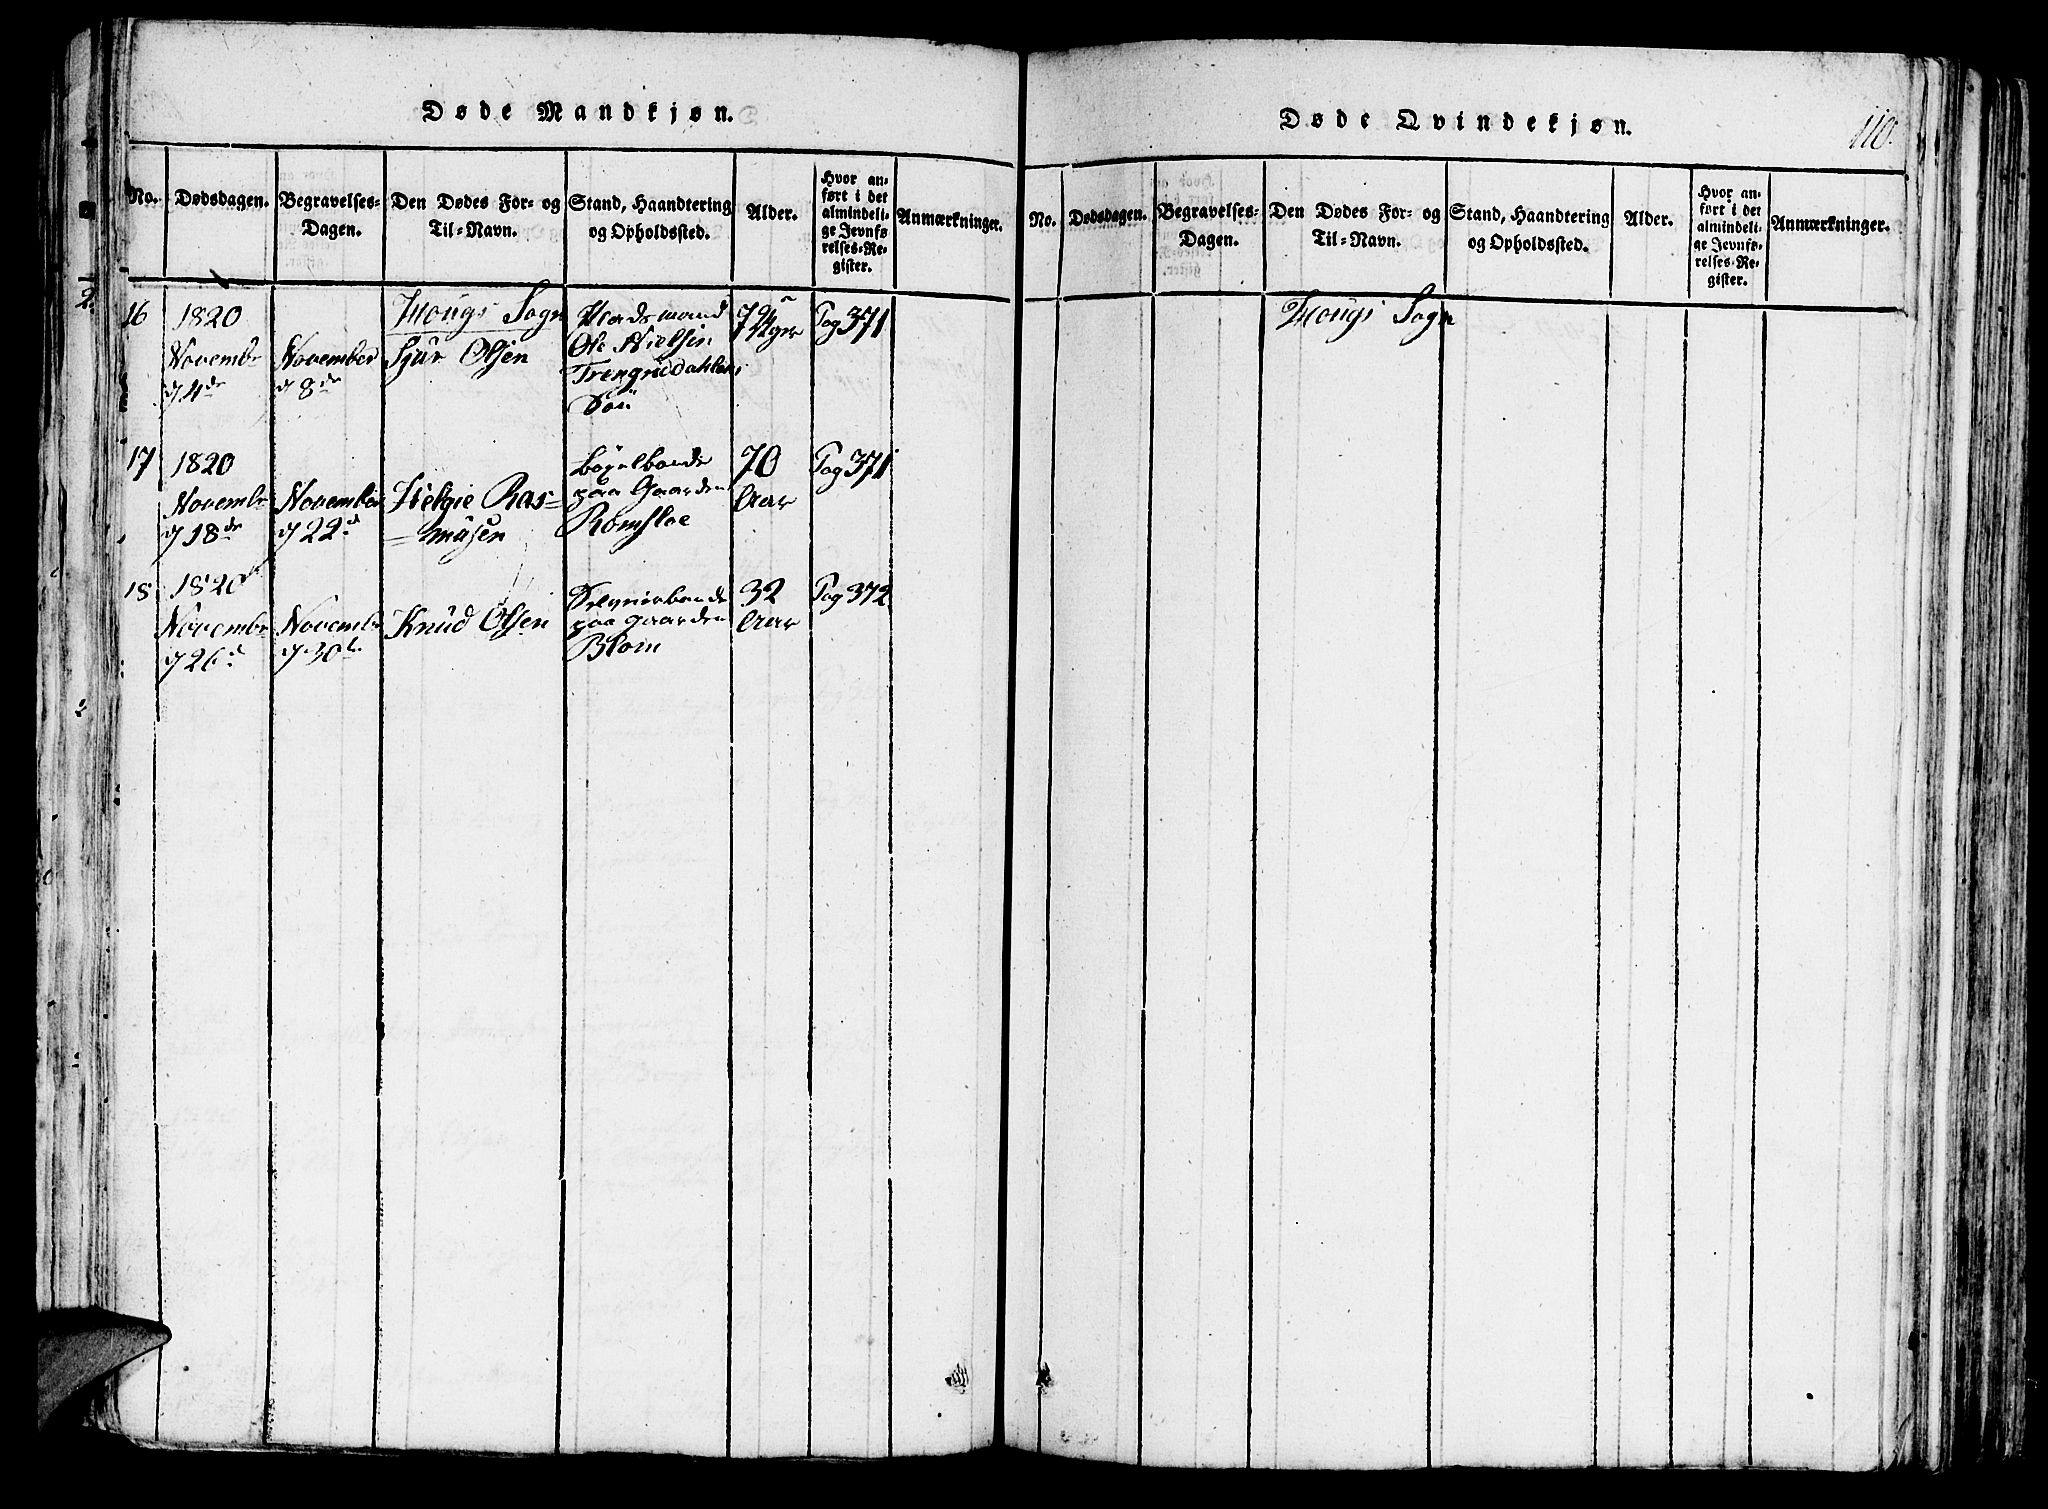 Døde Mandkjøn.
No.
Dødsdagen.
Begravelses-
Dagen.
Den Dødes For- og
Til-Navn.
Stand, Haandtering
og Opholdssted.
Alder.
Hvor an-
ført i det
almindeli-
ge Jevnfø-
relses-Re-
gister.
Anmærkninger.
Hougs Sogn
16
1820
Novembr
d 4de
November
d 8de
Sjur Olsen
Ole Nielsen
Søn
Pag 371
17
1820
Novembr
d 18de
November
d 22d
Helgie Ras=
=musen
Bøxelbonde
paa Gaarden
Romsloe
70
Aar
Pag 371
18
1820
Novembr
d 26d
Novembr
d 30de
Knud Olsen
paa gaarden
Blom
32
Aar
Pag 372
Døde Qvindekjøn.
110.
No.
Dødsdagen.
Begravelses-
Dagen.
Den Dødes For- og
Til-Navn.
Stand, Haandtering
og Opholdssted.
Alder.
Hvor an-
ført i det
almindeli-
ge Jevnfø-
relses-Re-
gister.
Anmærkninger.
Hougs Sogn
2.